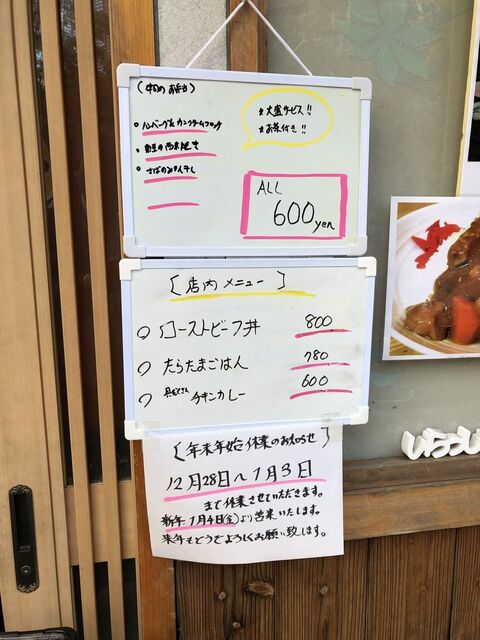 大盛サービス!!
お茶付き!!
ハンバーグ&カニクリームコロッケ
さばのみりん干し
ALL
600yen
[店内メニュー]
○ローストビーフ丼 800
○たらたまごはん 780
○具だくさん チキンカレー 600
[年末年始休業のお知らせ]
12月28日〜1月3日
まで休業させていただきます。
新年1月4日(金)より営業いたします。
来年もどうぞよろしくお願い致します。